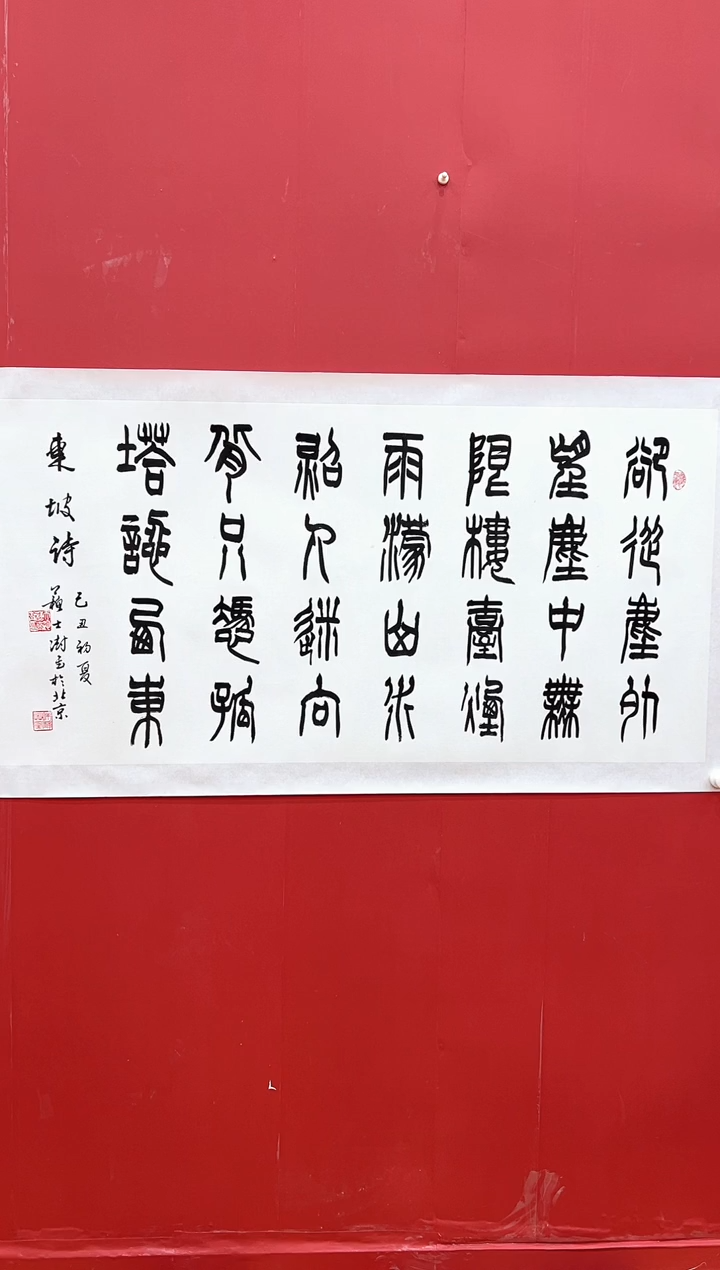 卻從塵外
望塵中無
限樓臺煙
雨濛山水
照人迷向
背只憑孤
塔認西東
東坡詩
己丑初夏
蘇士澍書於北京